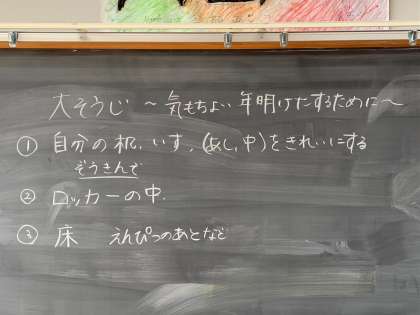 大そうじ ～気もちよい年明けにするために～
① 自分の机、いす、(あし、中)をきれいにする
ぞうきんで
② ロッカーの中.
③ 床 えんぴつのあとなど